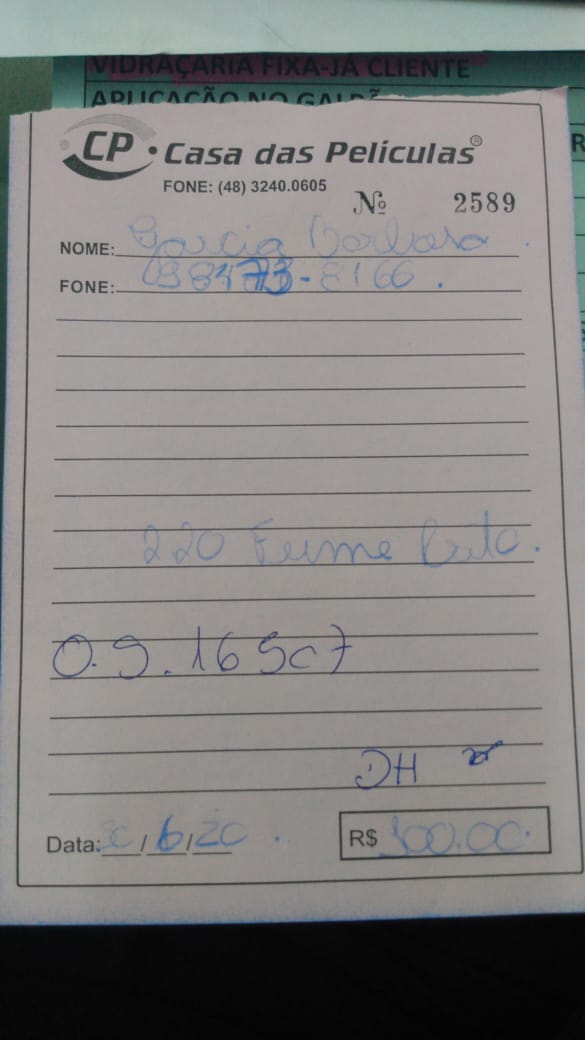 VIDRAÇARIA FIXA-JÁ CLIENTE
APLICAÇÃO NO GALPÃ
R
CP • Casa das Películas®
FONE: (48) 3240.0605
Nº 2589
NOME: Garcia Barbosa.
FONE: 98473-8166.
220 Fume
O.S. 16507
DH
Data: 30/6/20.
R$ 300.00.